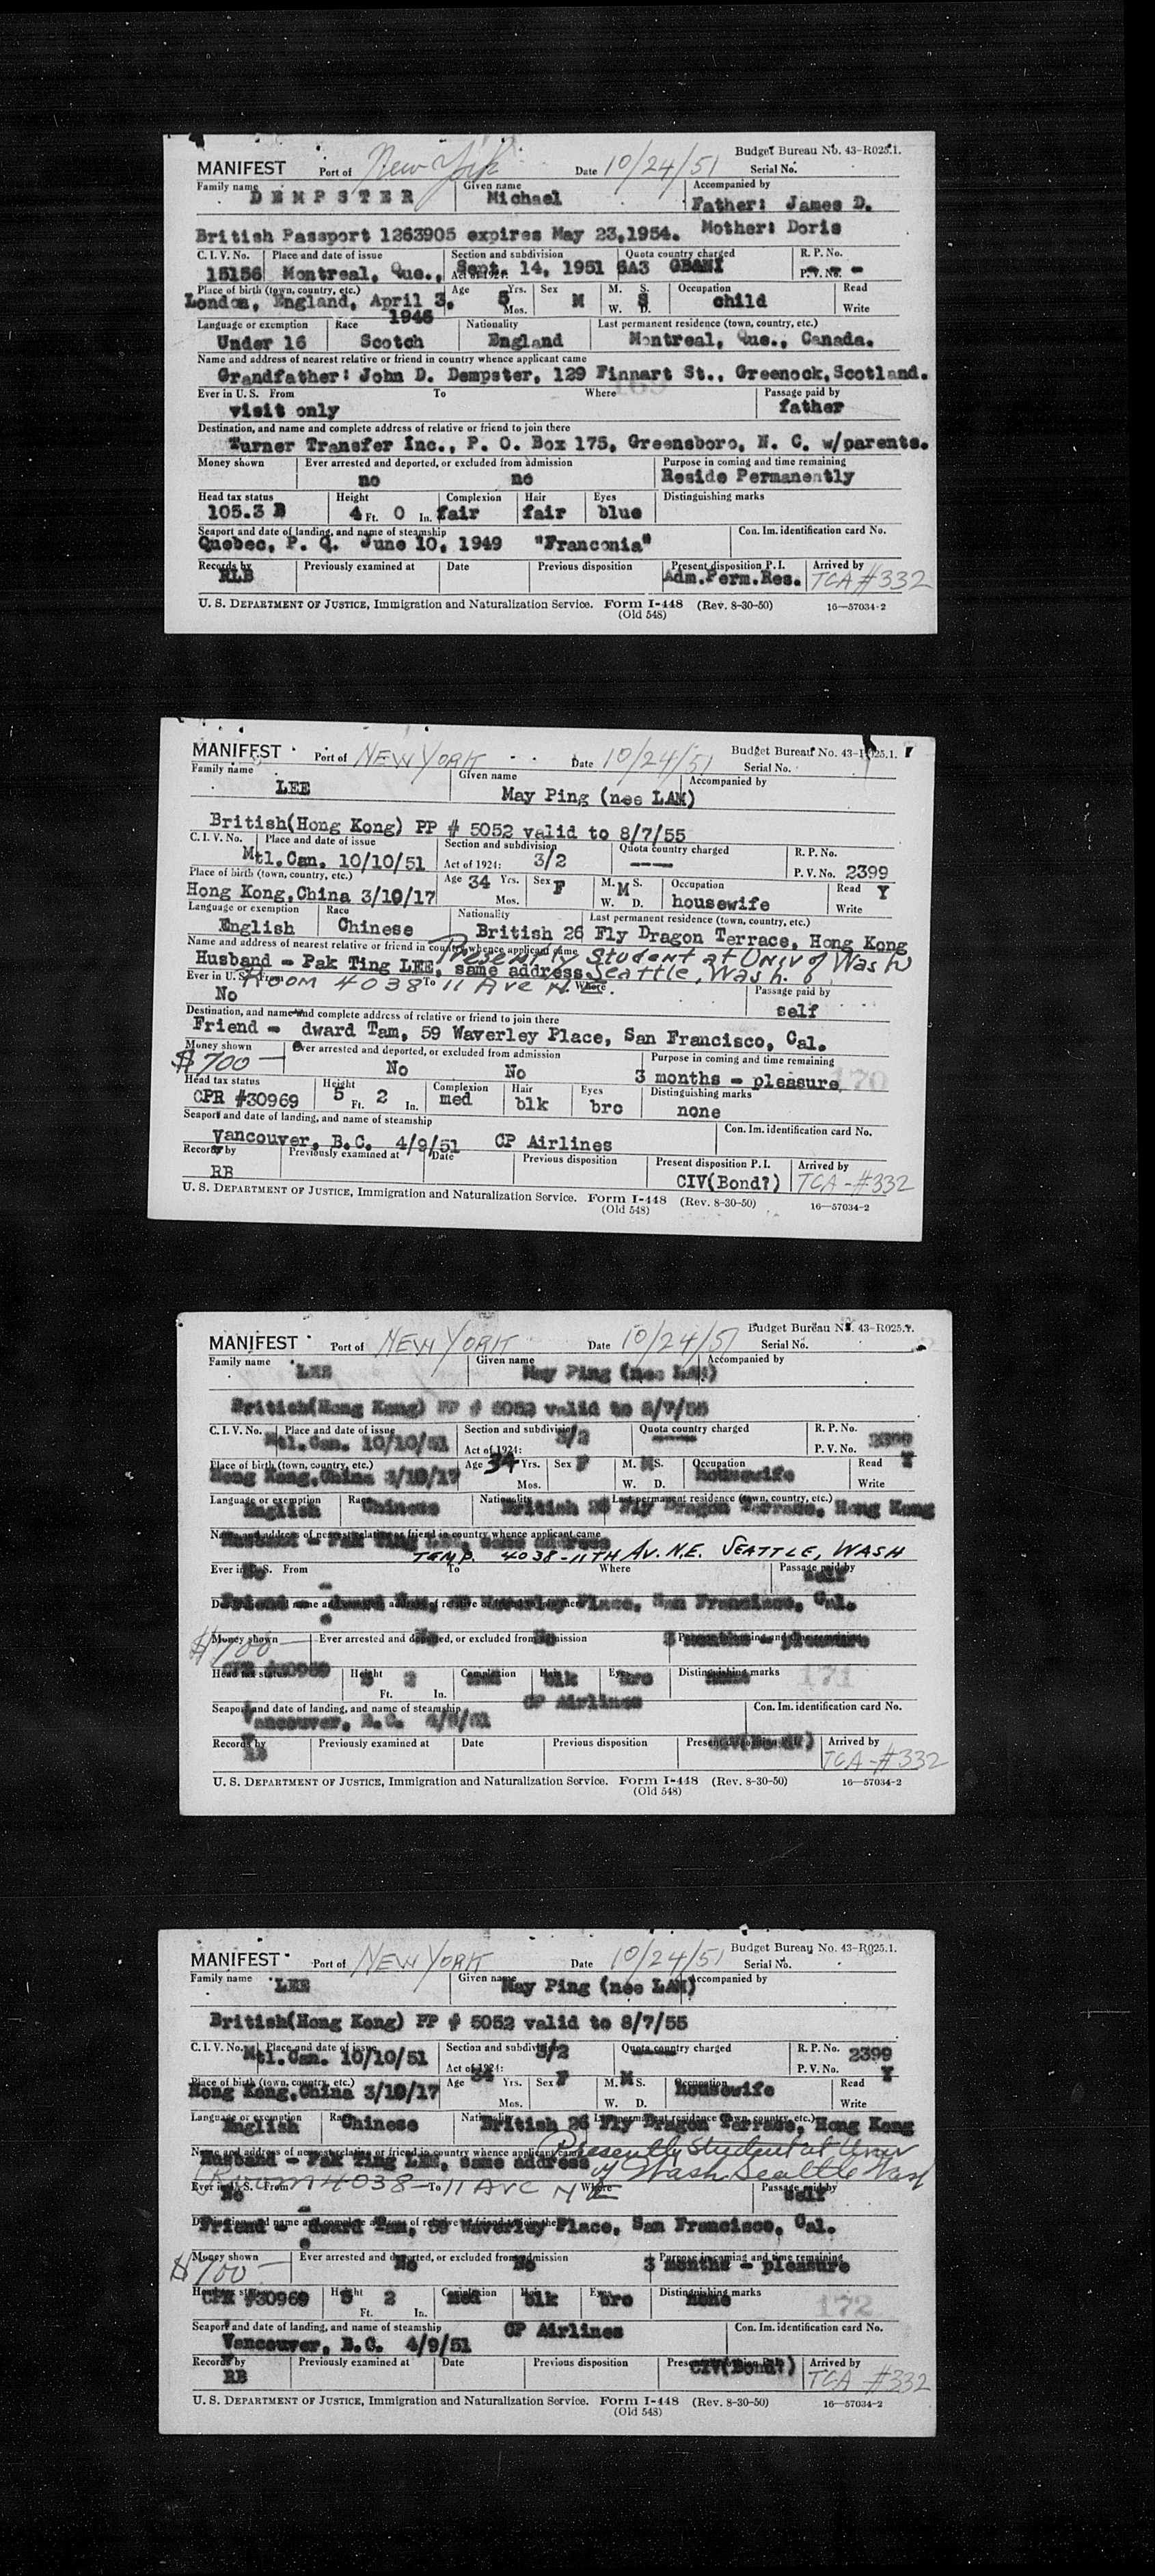 Budget Bureau No. 43-R025.1.
MANIFEST Port of New York Date 10/24/51 Serial No.
Family name DEMPSTER Given name Michael Accompanied by Father: James D.
British Passport 1263905 expires May 23,1954. Mother: Doris
C. I. V. No. Place and date of issue Section and subdivision Quota country charged R. P. No.
15156 Montreal, Que., Sept. 14, 1951 6A3 GBANI P. V. No. - - -
Act of 1924:
Place of birth (town, country, etc.) Age 5 Yrs. Mos. Sex M M. S. W. D. S Occupation child Read Write
London, England, April 3, 1946
Language or exemption Race Nationality Last permanent residence (town, country, etc.)
Under 16 Scotch England Montreal, Que., Canada.
Name and address of nearest relative or friend in country whence applicant came
Grandfather: John D. Dempster, 129 Finnart St., Greenock, Scotland.
169
Ever in U. S. From To Where Passage paid by
visit only father
Destination, and name and complete address of relative or friend to join there
Turner Transfer Inc., P. O. Box 175, Greensboro, N. C. w/parents.
Money shown Ever arrested and deported, or excluded from admission Purpose in coming and time remaining
no no Reside Permanently
Head tax status Height Complexion Hair Eyes Distinguishing marks
105.3 B 4 Ft. 0 In. fair fair blue
Seaport and date of landing, and name of steamship Con. Im. identification card No.
Quebec, P. Q. June 10, 1949 "Franconia"
Records by Previously examined at Date Previous disposition Present disposition P. I. Arrived by
RLB Adm.Perm.Res. TCA #332
U. S. DEPARTMENT OF JUSTICE, Immigration and Naturalization Service. Form I-448 (Rev. 8-30-50) 16—57034-2
(Old 548)
Budget Bureau No. 43-R025.1.
MANIFEST Port of NEW YORK Date 10/24/51 Serial No.
Family name LEE Given name May Ping (nee LAM) Accompanied by
British(Hong Kong) PP # 5052 valid to 8/7/55
C. I. V. No. Place and date of issue Section and subdivision Quota country charged R. P. No.
Mtl.Can. 10/10/51 Act of 1924: 3/2 —— P. V. No. 2399
Place of birth (town, country, etc.) Age 34 Yrs. Mos. Sex F M. S. W. D. M Occupation housewife Read Y Write
Hong Kong,China 3/10/17
Language or exemption Race Nationality Last permanent residence (town, country, etc.)
English Chinese British 26 Fly Dragon Terrace, Hong Kong
Name and address of nearest relative or friend in country whence applicant came
Presently Student at Univ of Wash
Husband - Pak Ting LEE, same address Seattle, Wash.
Room 4038 11 Ave N.E.
Ever in U. S. From To Where Passage paid by
No self
Destination, and name and complete address of relative or friend to join there
Friend - edward Tam, 59 Waverley Place, San Francisco, Cal.
Money shown Ever arrested and deported, or excluded from admission Purpose in coming and time remaining
$700 — No No 3 months - pleasure 170
Head tax status Height Complexion Hair Eyes Distinguishing marks
CPR #30969 5 Ft. 2 In. med blk bro none
Seaport and date of landing, and name of steamship Con. Im. identification card No.
Vancouver, B.C. 4/9/51 CP Airlines
Records by Previously examined at Date Previous disposition Present disposition P. I. Arrived by
RB CIV(Bond?) TCA-#332
U. S. DEPARTMENT OF JUSTICE, Immigration and Naturalization Service. Form I-448 (Rev. 8-30-50) 16—57034-2
(Old 548)
Budget Bureau No. 43-R025.1.
MANIFEST Port of NEW YORK Date 10/24/51 Serial No.
Family name LEE Given name May Ping (nee LAM) Accompanied by
British(Hong Kong) PP # 5052 valid to 8/7/55
C. I. V. No. Place and date of issue Section and subdivision Quota country charged R. P. No.
Mtl.Can. 10/10/51 Act of 1924: 3/2 —— P. V. No. 2399
Place of birth (town, country, etc.) Age 34 Yrs. Mos. Sex F M. S. W. D. M Occupation housewife Read Y Write
Hong Kong,China 3/10/17
Language or exemption Race Nationality Last permanent residence (town, country, etc.)
English Chinese British 26 Fly Dragon Terrace, Hong Kong
Name and address of nearest relative or friend in country whence applicant came
Husband - Pak Ting LEE, same address
TEMP. 4038-11TH AV. N.E. SEATTLE, WASH
Ever in U. S. From To Where Passage paid by
No self
Destination, and name and complete address of relative or friend to join there
Friend - edward Tam, 59 Waverley Place, San Francisco, Cal.
Money shown Ever arrested and deported, or excluded from admission Purpose in coming and time remaining
$700 — No No 3 months - pleasure
Head tax status Height Complexion Hair Eyes Distinguishing marks
CPR #30969 5 Ft. 2 In. med blk bro none 171
Seaport and date of landing, and name of steamship Con. Im. identification card No.
Vancouver, B.C. 4/9/51 CP Airlines
Records by Previously examined at Date Previous disposition Present disposition P. I. Arrived by
RB CIV(Bond?) TCA-#332
U. S. DEPARTMENT OF JUSTICE, Immigration and Naturalization Service. Form I-448 (Rev. 8-30-50) 16—57034-2
(Old 548)
Budget Bureau No. 43-R025.1.
MANIFEST Port of NEW YORK Date 10/24/51 Serial No.
Family name LEE Given name May Ping (nee LAM) Accompanied by
British(Hong Kong) PP # 5052 valid to 8/7/55
C. I. V. No. Place and date of issue Section and subdivision Quota country charged R. P. No.
Mtl.Can. 10/10/51 Act of 1924: 3/2 —— P. V. No. 2399
Place of birth (town, country, etc.) Age 34 Yrs. Mos. Sex F M. S. W. D. M Occupation housewife Read Y Write
Hong Kong,China 3/10/17
Language or exemption Race Nationality Last permanent residence (town, country, etc.)
English Chinese British 26 Fly Dragon Terrace, Hong Kong
Name and address of nearest relative or friend in country whence applicant came
Presently Student at Univ
Husband - Pak Ting LEE, same address of Wash Seattle Wash
(Room 4038-11 Ave N E
Ever in U. S. From To Where Passage paid by
No self
Destination, and name and complete address of relative or friend to join there
Friend - edward Tam, 59 Waverley Place, San Francisco, Cal.
Money shown Ever arrested and deported, or excluded from admission Purpose in coming and time remaining
$700 — No No 3 months - pleasure
Head tax status Height Complexion Hair Eyes Distinguishing marks
CPR #30969 5 Ft. 2 In. med blk bro none 172
Seaport and date of landing, and name of steamship Con. Im. identification card No.
Vancouver, B.C. 4/9/51 CP Airlines
Records by Previously examined at Date Previous disposition Present disposition P. I. Arrived by
RB CIV(Bond?) TCA #332
U. S. DEPARTMENT OF JUSTICE, Immigration and Naturalization Service. Form I-448 (Rev. 8-30-50) 16—57034-2
(Old 548)